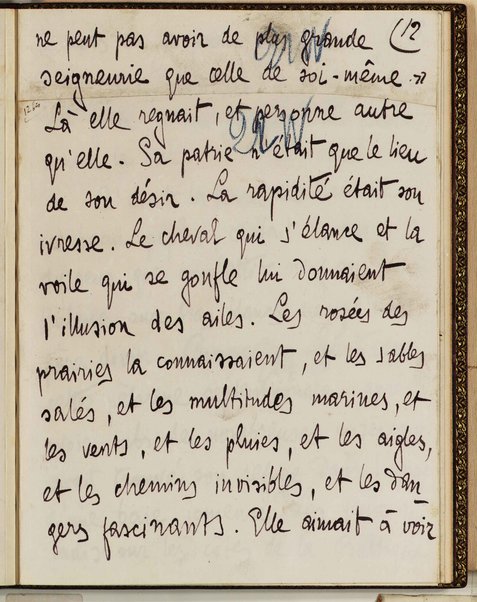 ne peut pas avoir de plus grande (12
seigneurie que celle de soi-même."
Là elle regnait, et personne autre
qu'elle. Sa patrie n'était que le lieu
de son désir. La rapidité était son
ivresse. Le cheval qui s'élance et la
voile qui se gonfle lui donnaient
l'illusion des ailes. Les rosées des
prairies la connaissaient, et les sables
salés, et les multitudes marines, et
les vents, et les pluies, et les aigles,
et les chemins invisibles, et les dan-
gers fascinants. Elle aimait à voir